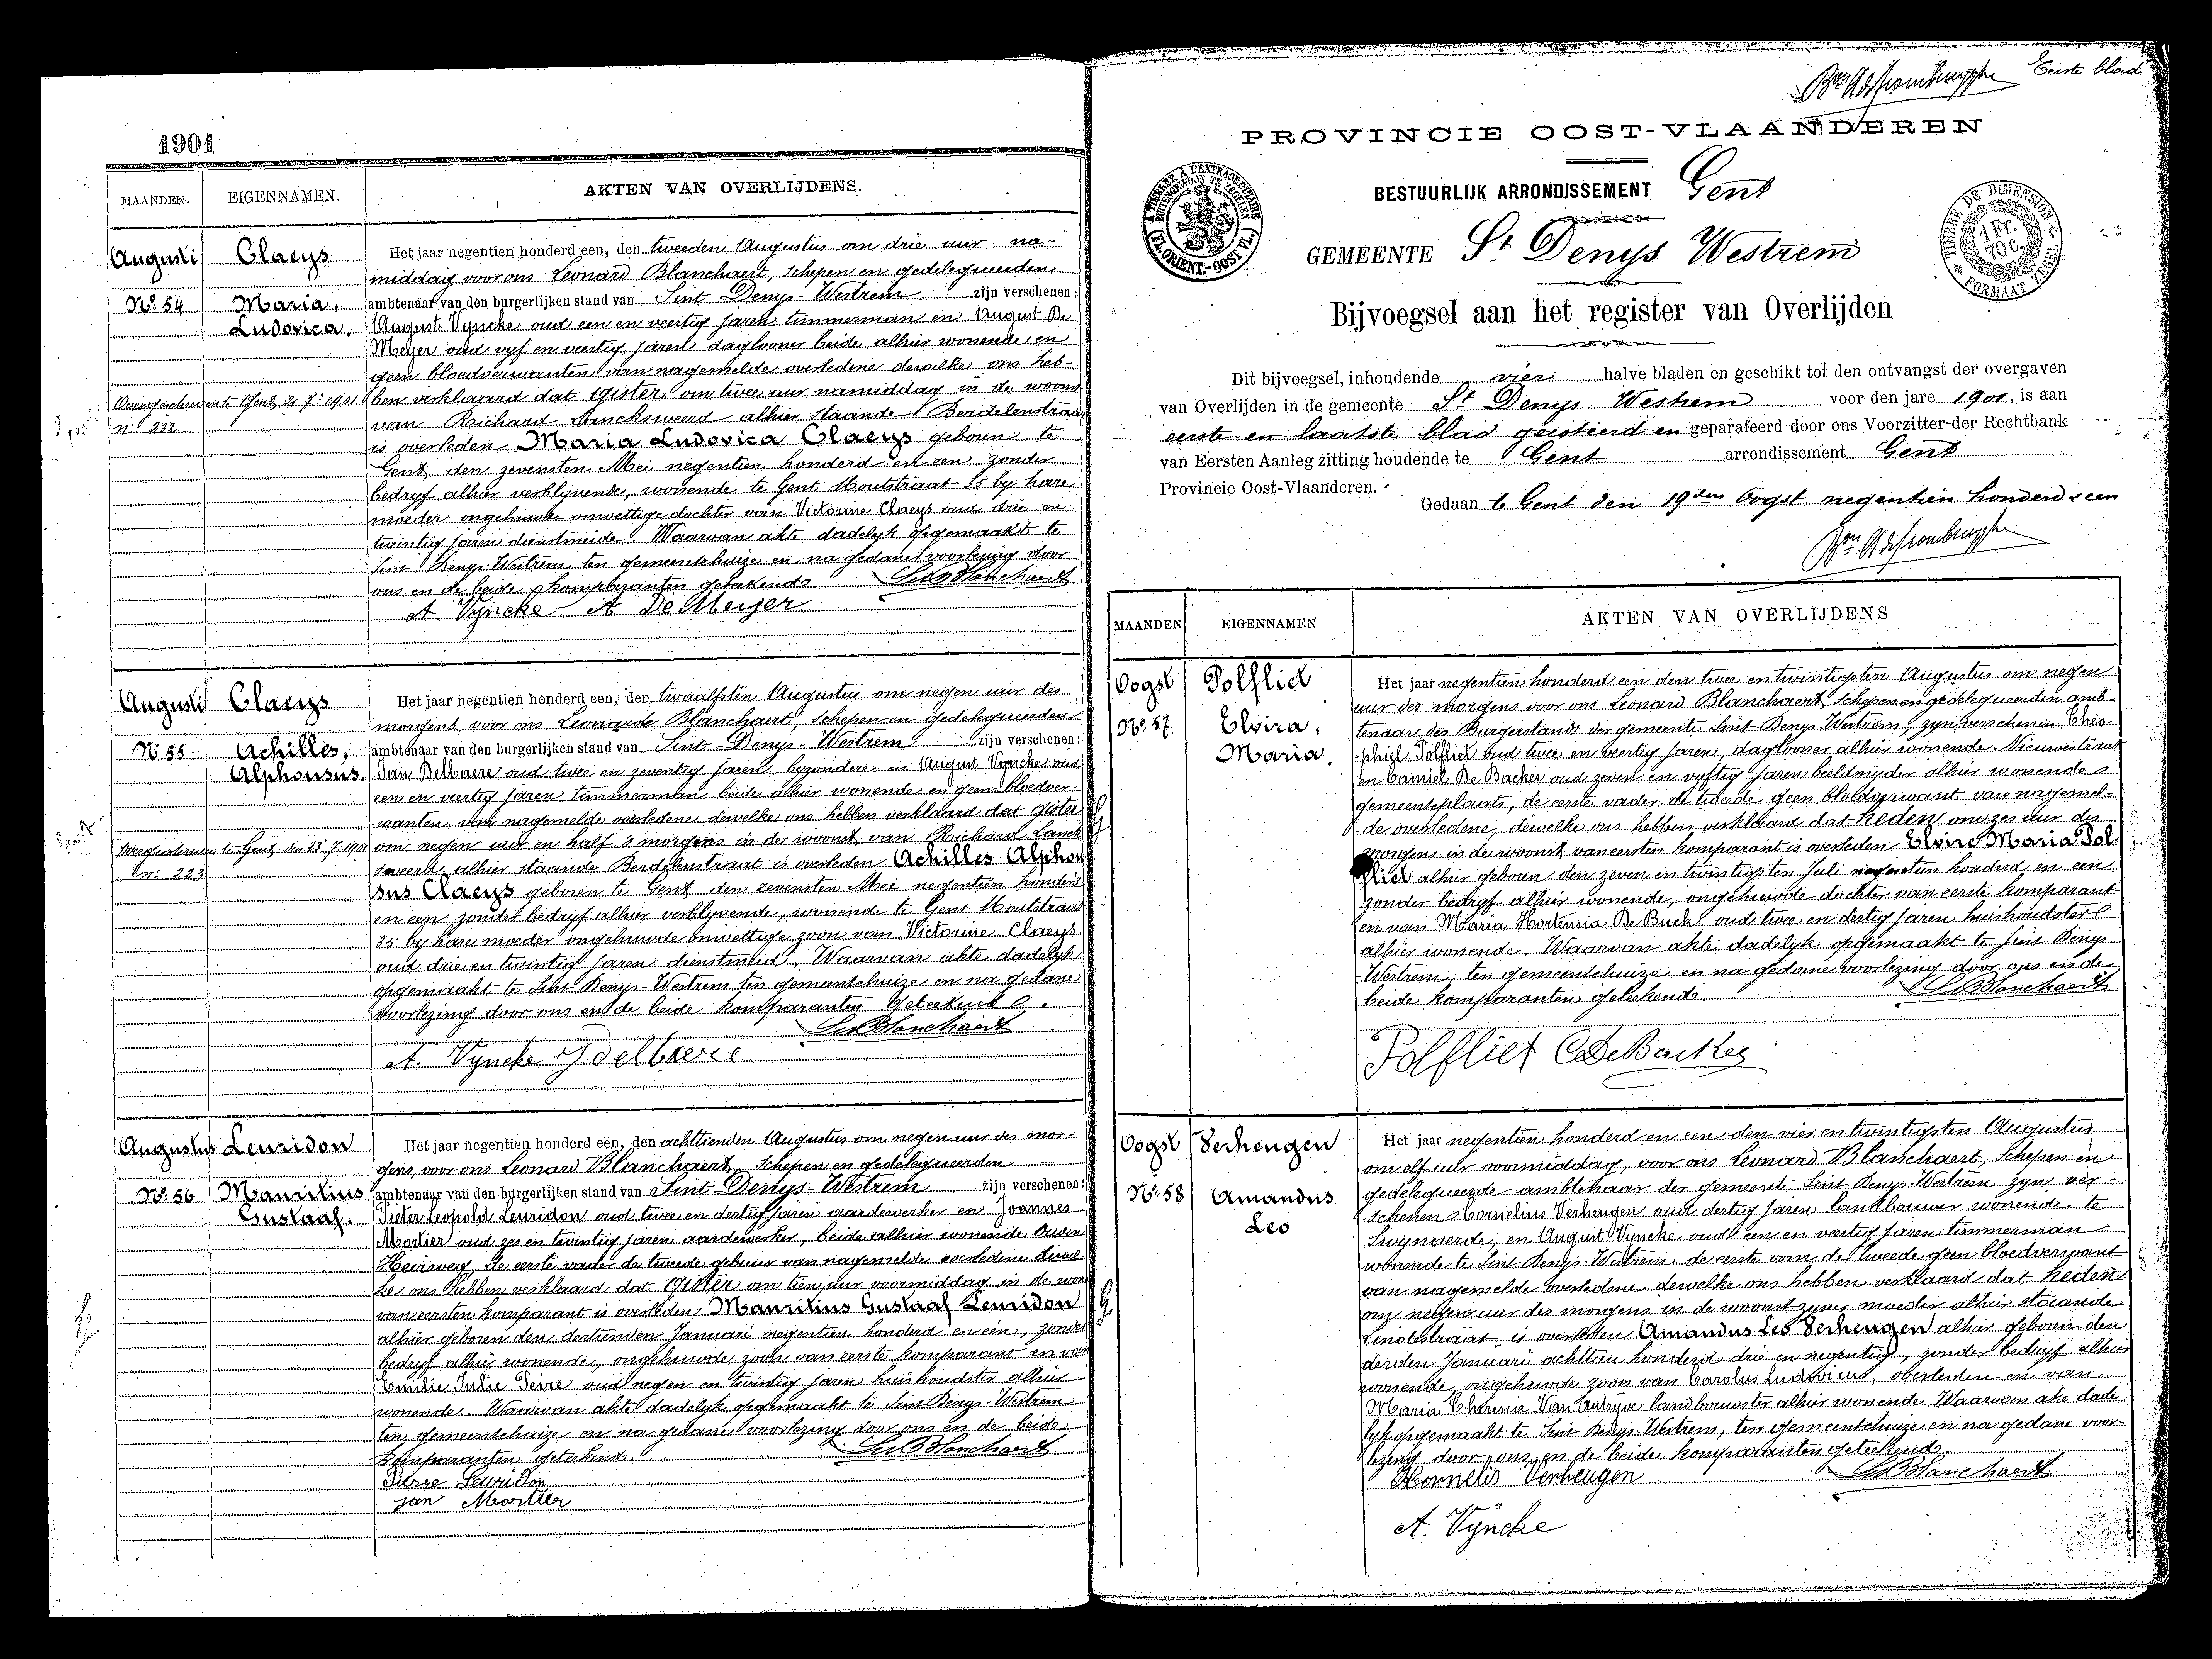 1901
MAANDEN.
EIGENNAMEN.
AKTEN VAN OVERLIJDENS.
Augusti
Claeys
Nº 54
Maria,
Ludovica.
Overgeschreven te Gent, 21. 7.: 1901
nº 222
Het jaar negentien honderd een, den tweeden Augustus om drie uur na-
middag voor ons Leonard Blanchaert, Schepen en gedelegueerden
ambtenaar van den burgerlijken stand van Sint Denys-Westrem zijn verschenen:
August Vyncke oud een en veertig jaren timmerman en August De
Meyer oud vyf en veertig jaren daglooner beide alhier wonende en
geen bloedverwanten van nagemelde overledene dewelke ons heb-
ben verklaard dat Gister om twee uur namiddag in de woonst
van Richard alhier staande Berdelenstraat
is overleden Maria Ludovica Claeys geboren te
Gent, den zevensten Mei negentien honderd en een zonder
bedryf alhier verblyvende, wonende te Gent Moutstraat 35 by hare
moeder ongehuwde onwettige dochter van Victorine Claeys oud drie en
twintig jaren dienstmeide. Waarvan akte dadelyk opgemaakt te
Sint Denys-Westrem ten gemeentehuize en na gedane voorlezing door
ons en de beide komparanten geteekend.
Leo Blanchaert
A Vyncke A De Meyer
Augusti
Claeys
Nº 55
Achilles,
Alphonsus.
Overgeschreven te Gent den 23. 7. 1901
nº 223
Het jaar negentien honderd een, den twaalfsten Augustus om negen uur des
morgens voor ons Leonarde Blanchaert, Schepen en gedelegueerden
ambtenaar van den burgerlijken stand van Sint Denys-Westrem zijn verschenen:
Jan Delbaere oud twee en zeventig jaren byzondere en August Vyncke oud
een en veertig jaren timmerman beide alhier wonende en geen bloedver-
wanten van nagemelde overledene dewelke ons hebben verklaard dat Gister
om negen uur en half 's morgens in de woonst van Richard Lanck
sweerd alhier staande Berdelenstraat is overleden Achilles Alphon
sus Claeys geboren te Gent den zevensten Mei negentien honderd
en een zonder bedryf alhier verblyvende, wonende te Gent Moutstraat
35 by hare moeder ongehuwde onwettige zoon van Victorine Claeys
oud drie en twintig jaren dienstmeid. Waarvan akte dadelyk
opgemaakt te Sint Denys-Westrem ten gemeentehuize en na gedane
voorlezing door ons en de beide komparanten Geteekend.
Leo Blanchaert
A. Vyncke J delbaere
Augustus
Leuridon
Nº 56
Mauritius
Gustaaf.
Het jaar negentien honderd een, den achttienden Augustus om negen uur des mor-
gens, voor ons Leonard Blanchaert, Schepen en gedelegueerden
ambtenaar van den burgerlijken stand van Sint-Denys-Westrem zijn verschenen:
Pieter Leopold Leuridon oud twee en dertig jaren aardewerker en Joannes
Mortier oud zes en twintig jaren aardewerker, beide alhier wonende Ouden
Heirweg de eerste vader de tweede gebuur van nagemelde overledene dewel
ke ons hebben verklaard dat Gister om tien uur voormiddag in de woon
van eersten komparant is overleden Mauritius Gustaaf Leuridon
alhier geboren den dertienden Januari negentien honderd en een, zonder
bedryf alhier wonende, ongehuwde zoon van eerste komparant en van
Emilie Julie Peire oud negen en twintig jaren huishoudster alhier
wonende. Waarvan akte dadelyk opgemaakt te Sint Denys-Westrem
ten gemeentehuize en na gedane voorlezing door ons en de beide
komparanten geteekend.
Leo Blanchaert
Pierre Leuridon
jan Mortier
Eerste blad
PROVINCIE OOST-VLAANDEREN
A TIMBRER A L'EXTRAORDINAIRE
BUITENGEWOON TE ZEGELEN
(FL. ORIENT.-OOST VL.)
TIMBRE DE DIMENSION
1 FR. 70 C.
FORMAAT ZEGEL
BESTUURLIJK ARRONDISSEMENT Gent
GEMEENTE St Denys Westrem
Bijvoegsel aan het register van Overlijden
Dit bijvoegsel, inhoudende vier halve bladen en geschikt tot den ontvangst der overgaven
van Overlijden in de gemeente St Denys Westrem voor den jare 1901, is aan
eerste en laatste blad gecoteerd en geparafeerd door ons Voorzitter der Rechtbank
van Eersten Aanleg zitting houdende te Gent arrondissement Gent
Provincie Oost-Vlaanderen.
Gedaan te Gent den 19den Oogst negentien honderd een
MAANDEN
EIGENNAMEN
AKTEN VAN OVERLIJDENS
Oogst
Polfliet
Nº 57
Elvira,
Maria.
Het jaar negentien honderd een den twee en twintigsten Augustus om negen
uur des morgens voor ons Leonard Blanchaert, Schepen en gedelegueerden amb-
tenaar des Burgerstands der gemeente Sint Denys-Westrem, zyn verschenen Theo-
phiel Polfliet oud twee en veertig jaren, daglooner alhier wonende Nieuwestraat
en Camiel De Backer oud zeven en vyftig jaren beeldsnyder alhier wonende
gemeenteplaats, de eerste vader de tweede geen bloedverwant van nagemel-
de overledene, dewelke ons hebben verklaard dat heden om zes uur des
morgens in de woonst van eersten komparant is overleden Elvire Maria Pol-
fliet alhier geboren den zeven en twintigsten Juli negentien honderd en een
zonder bedryf alhier wonende, ongehuwde dochter van eerste komparant
en van Maria Hortensia De Buck oud twee en dertig jaren huishoudster
alhier wonende. Waarvan akte dadelyk opgemaakt te Sint Denys
Westrem, ten gemeentehuize en na gedane voorlezing door ons en de
beide komparanten geteekend.
Leo Blanchaert
Polfliet C De Backer
Oogst
Verheugen
Nº 58
Amandus
Leo
Het jaar negentien honderd en een den vier en twintigsten Augustus
om elf uur voormiddag, voor ons Leonard Blanchaert, Schepen en
gedelegueerde ambtenaar der gemeente Sint Denys-Westrem zyn ver-
schenen Cornelius Verheugen oud dertig jaren landbouwer wonende te
Swynaerde, en August Vyncke oud een en veertig jaren timmerman
wonende te Sint Denys-Westrem de eerste oom de tweede geen bloedverwant
van nagemelde overledene dewelke ons hebben verklaard dat heden
om negen uur des morgens in de woonst zyner moeder alhier staande
Lindestraat is overleden Amandus Leo Verheugen alhier geboren den
derden Januari achttien honderd drie en negentig, zonder bedryf alhier
wonende, ongehuwde zoon van Carolus Ludovicus, overleden en van
Maria Theresia Van Autryve landbouwster alhier wonende. Waarvan akte dade
lyk opgemaakt te Sint Denys-Westrem, ten gemeentehuize en na gedane voor-
lezing door ons en de beide komparanten geteekend.
Leo Blanchaert
Kornelis Verheugen
A. Vyncke